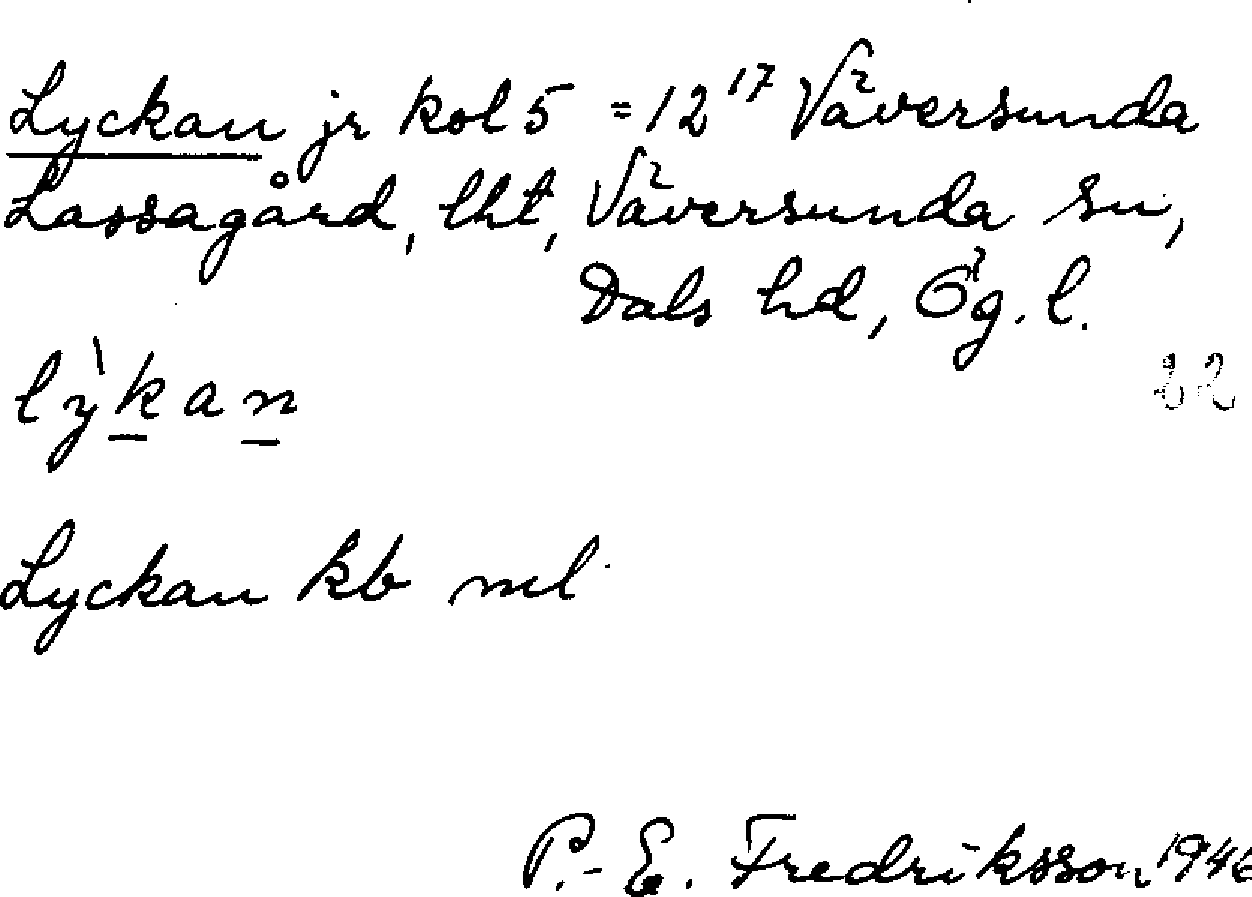 Lyckan jr kol 5 = 12¹⁷ Väversunda
Lassagård, lht, Väversunda sn,
Dals hd, Ög. l.
lỳkan
22
Lyckan kb ml
P.-E. Fredriksson 1946